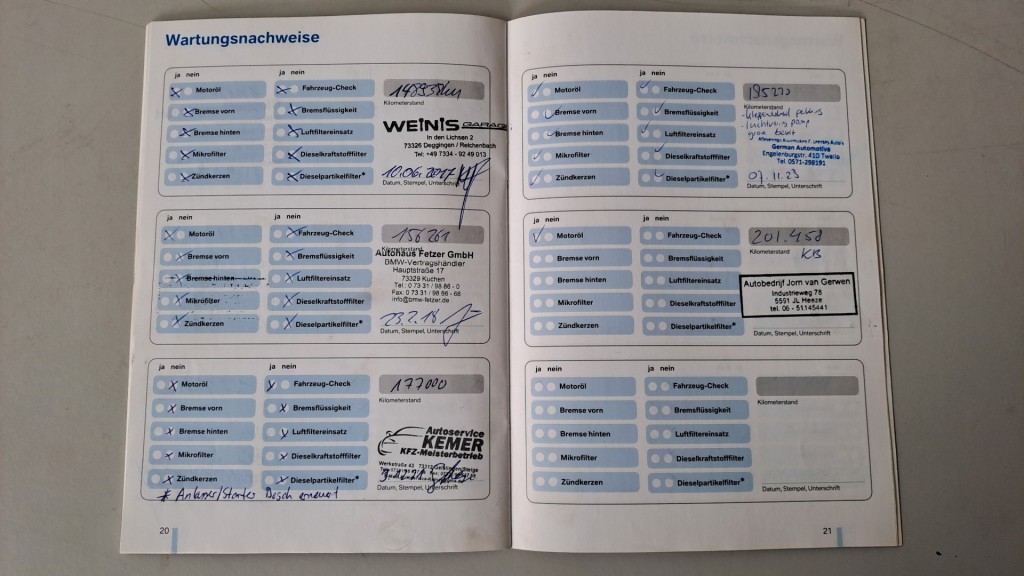 Wartungsnachweise
ja nein ja nein
Motoröl Fahrzeug-Check
Bremse vorn Bremsflüssigkeit
Bremse hinten Luftfiltereinsatz
Mikrofilter Dieselkraftstofffilter
Zündkerzen Dieselpartikelfilter*
Kilometerstand
WEINIS GARAGE
In den Lichsen 2
73326 Deggingen / Reichenbach
Tel: +49 7334 - 92 49 013
10.06.2017
Datum, Stempel, Unterschrift
ja nein ja nein
Motoröl Fahrzeug-Check
Bremse vorn Bremsflüssigkeit
Bremse hinten Luftfiltereinsatz
Mikrofilter Dieselkraftstofffilter
Zündkerzen Dieselpartikelfilter*
156261
Kilometerstand
Autohaus Fetzer GmbH
BMW-Vertragshändler
Hauptstraße 17
73329 Kuchen
Tel.: 0 73 31 / 98 86 - 0
Fax: 0 73 31 / 98 86 - 68
info@bmw-fetzer.de
23.2.18
Datum, Stempel, Unterschrift
ja nein ja nein
Motoröl Fahrzeug-Check
Bremse vorn Bremsflüssigkeit
Bremse hinten Luftfiltereinsatz
Mikrofilter Dieselkraftstofffilter
Zündkerzen Dieselpartikelfilter*
177000
Kilometerstand
Autoservice
KEMER
KFZ-Meisterbetrieb
Datum, Stempel, Unterschrift
* Anlasser/Starter
20
ja nein ja nein
Motoröl Fahrzeug-Check
Bremse vorn Bremsflüssigkeit
Bremse hinten Luftfiltereinsatz
Mikrofilter Dieselkraftstofffilter
Zündkerzen Dieselpartikelfilter*
195270
Kilometerstand
German Automotive
Engelenburgstr. 410 Twello
Tel. 0571-298191
07.11.23
Datum, Stempel, Unterschrift
ja nein ja nein
Motoröl Fahrzeug-Check
Bremse vorn Bremsflüssigkeit
Bremse hinten Luftfiltereinsatz
Mikrofilter Dieselkraftstofffilter
Zündkerzen Dieselpartikelfilter*
201.458
Kilometerstand
KB
Autobedrijf Jorn van Gerwen
Industrieweg 78
5591 JL Heeze
tel. 06 - 51145441
Datum, Stempel, Unterschrift
ja nein ja nein
Motoröl Fahrzeug-Check
Bremse vorn Bremsflüssigkeit
Bremse hinten Luftfiltereinsatz
Mikrofilter Dieselkraftstofffilter
Zündkerzen Dieselpartikelfilter*
Kilometerstand
Datum, Stempel, Unterschrift
21